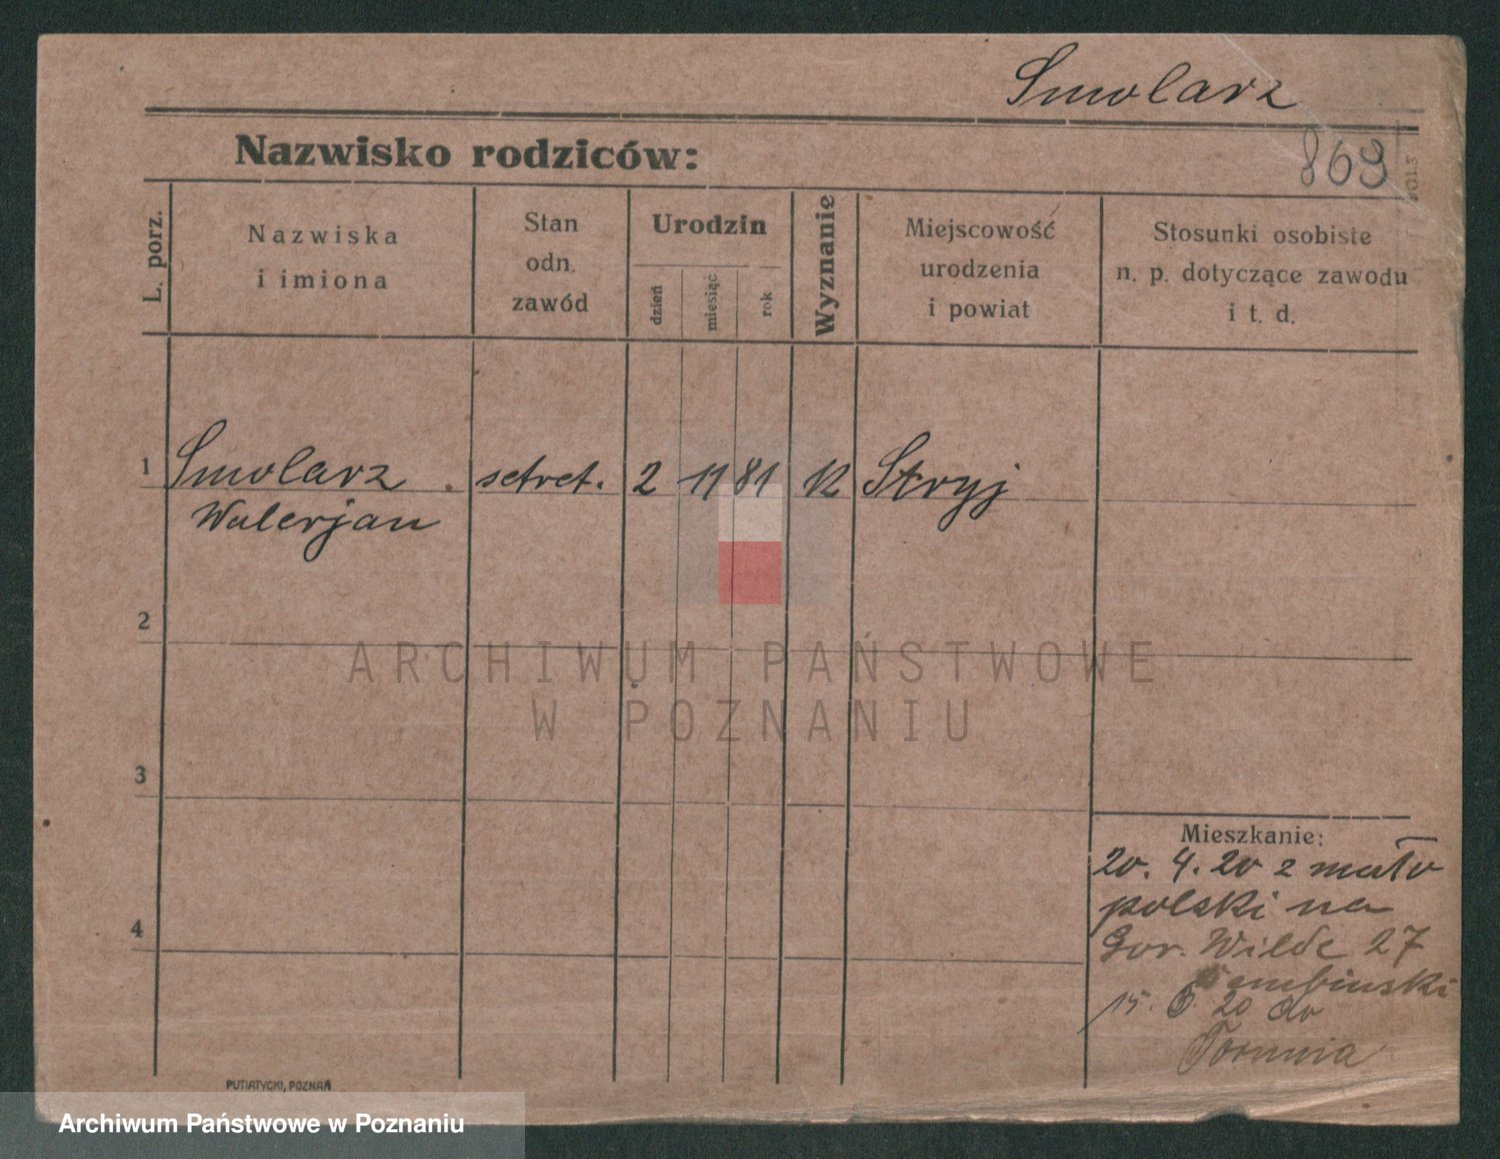 Smolarz
Nazwisko rodziców:
869
L. porz.
Nazwiska
i imiona
Stan
odn.
zawód
Urodzin
dzień
miesiąc
rok
Wyznanie
Miejscowość
urodzenia
i powiat
Stosunki osobiste
n. p. dotyczące zawodu
i t. d.
1 Smolarz sekret. 2 11 81 K Stryj
Walerjan
2
ARCHIWUM PAŃSTWOWE
W POZNANIU
3
4
Mieszkanie:
20. 4. 20 z mało
polski na
Gor. Wilde 27
15. 6. 20 do
Torunia
PUTIATYCKI, POZNAŃ
Archiwum Państwowe w Poznaniu